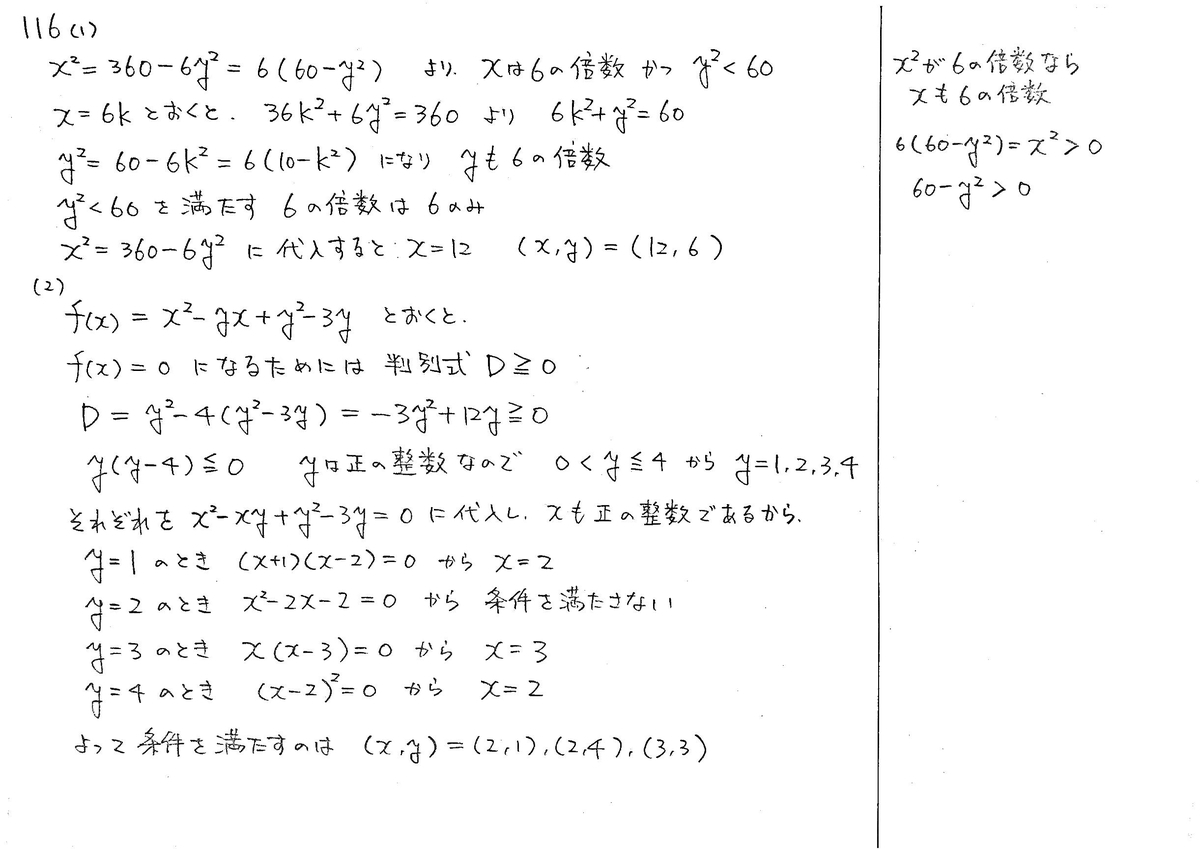 116(1)
x²=360-6y²=6(60-y²) より、xは6の倍数 かつ y²<60
x=6k とおくと、 36k²+6y²=360 より 6k²+y²=60
y²=60-6k²=6(10-k²) になり yも6の倍数
y²<60 を満たす 6の倍数は 6のみ
x²=360-6y² に代入すると x=12 (x,y)=(12,6)
(2)
f(x)=x²-yx+y²-3y とおくと、
f(x)=0 になるためには 判別式 D≧0
D=y²-4(y²-3y)=-3y²+12y≧0
y(y-4)≦0 yは正の整数なので 0<y≦4 から y=1,2,3,4
それぞれを x²-xy+y²-3y=0 に代入し、xも正の整数であるから、
y=1 のとき (x+1)(x-2)=0 から x=2
y=2 のとき x²-2x-2=0 から 条件を満たさない
y=3 のとき x(x-3)=0 から x=3
y=4 のとき (x-2)²=0 から x=2
よって条件を満たすのは (x,y)=(2,1),(2,4),(3,3)
x²が6の倍数なら
xも6の倍数
6(60-y²)=x²>0
60-y²>0